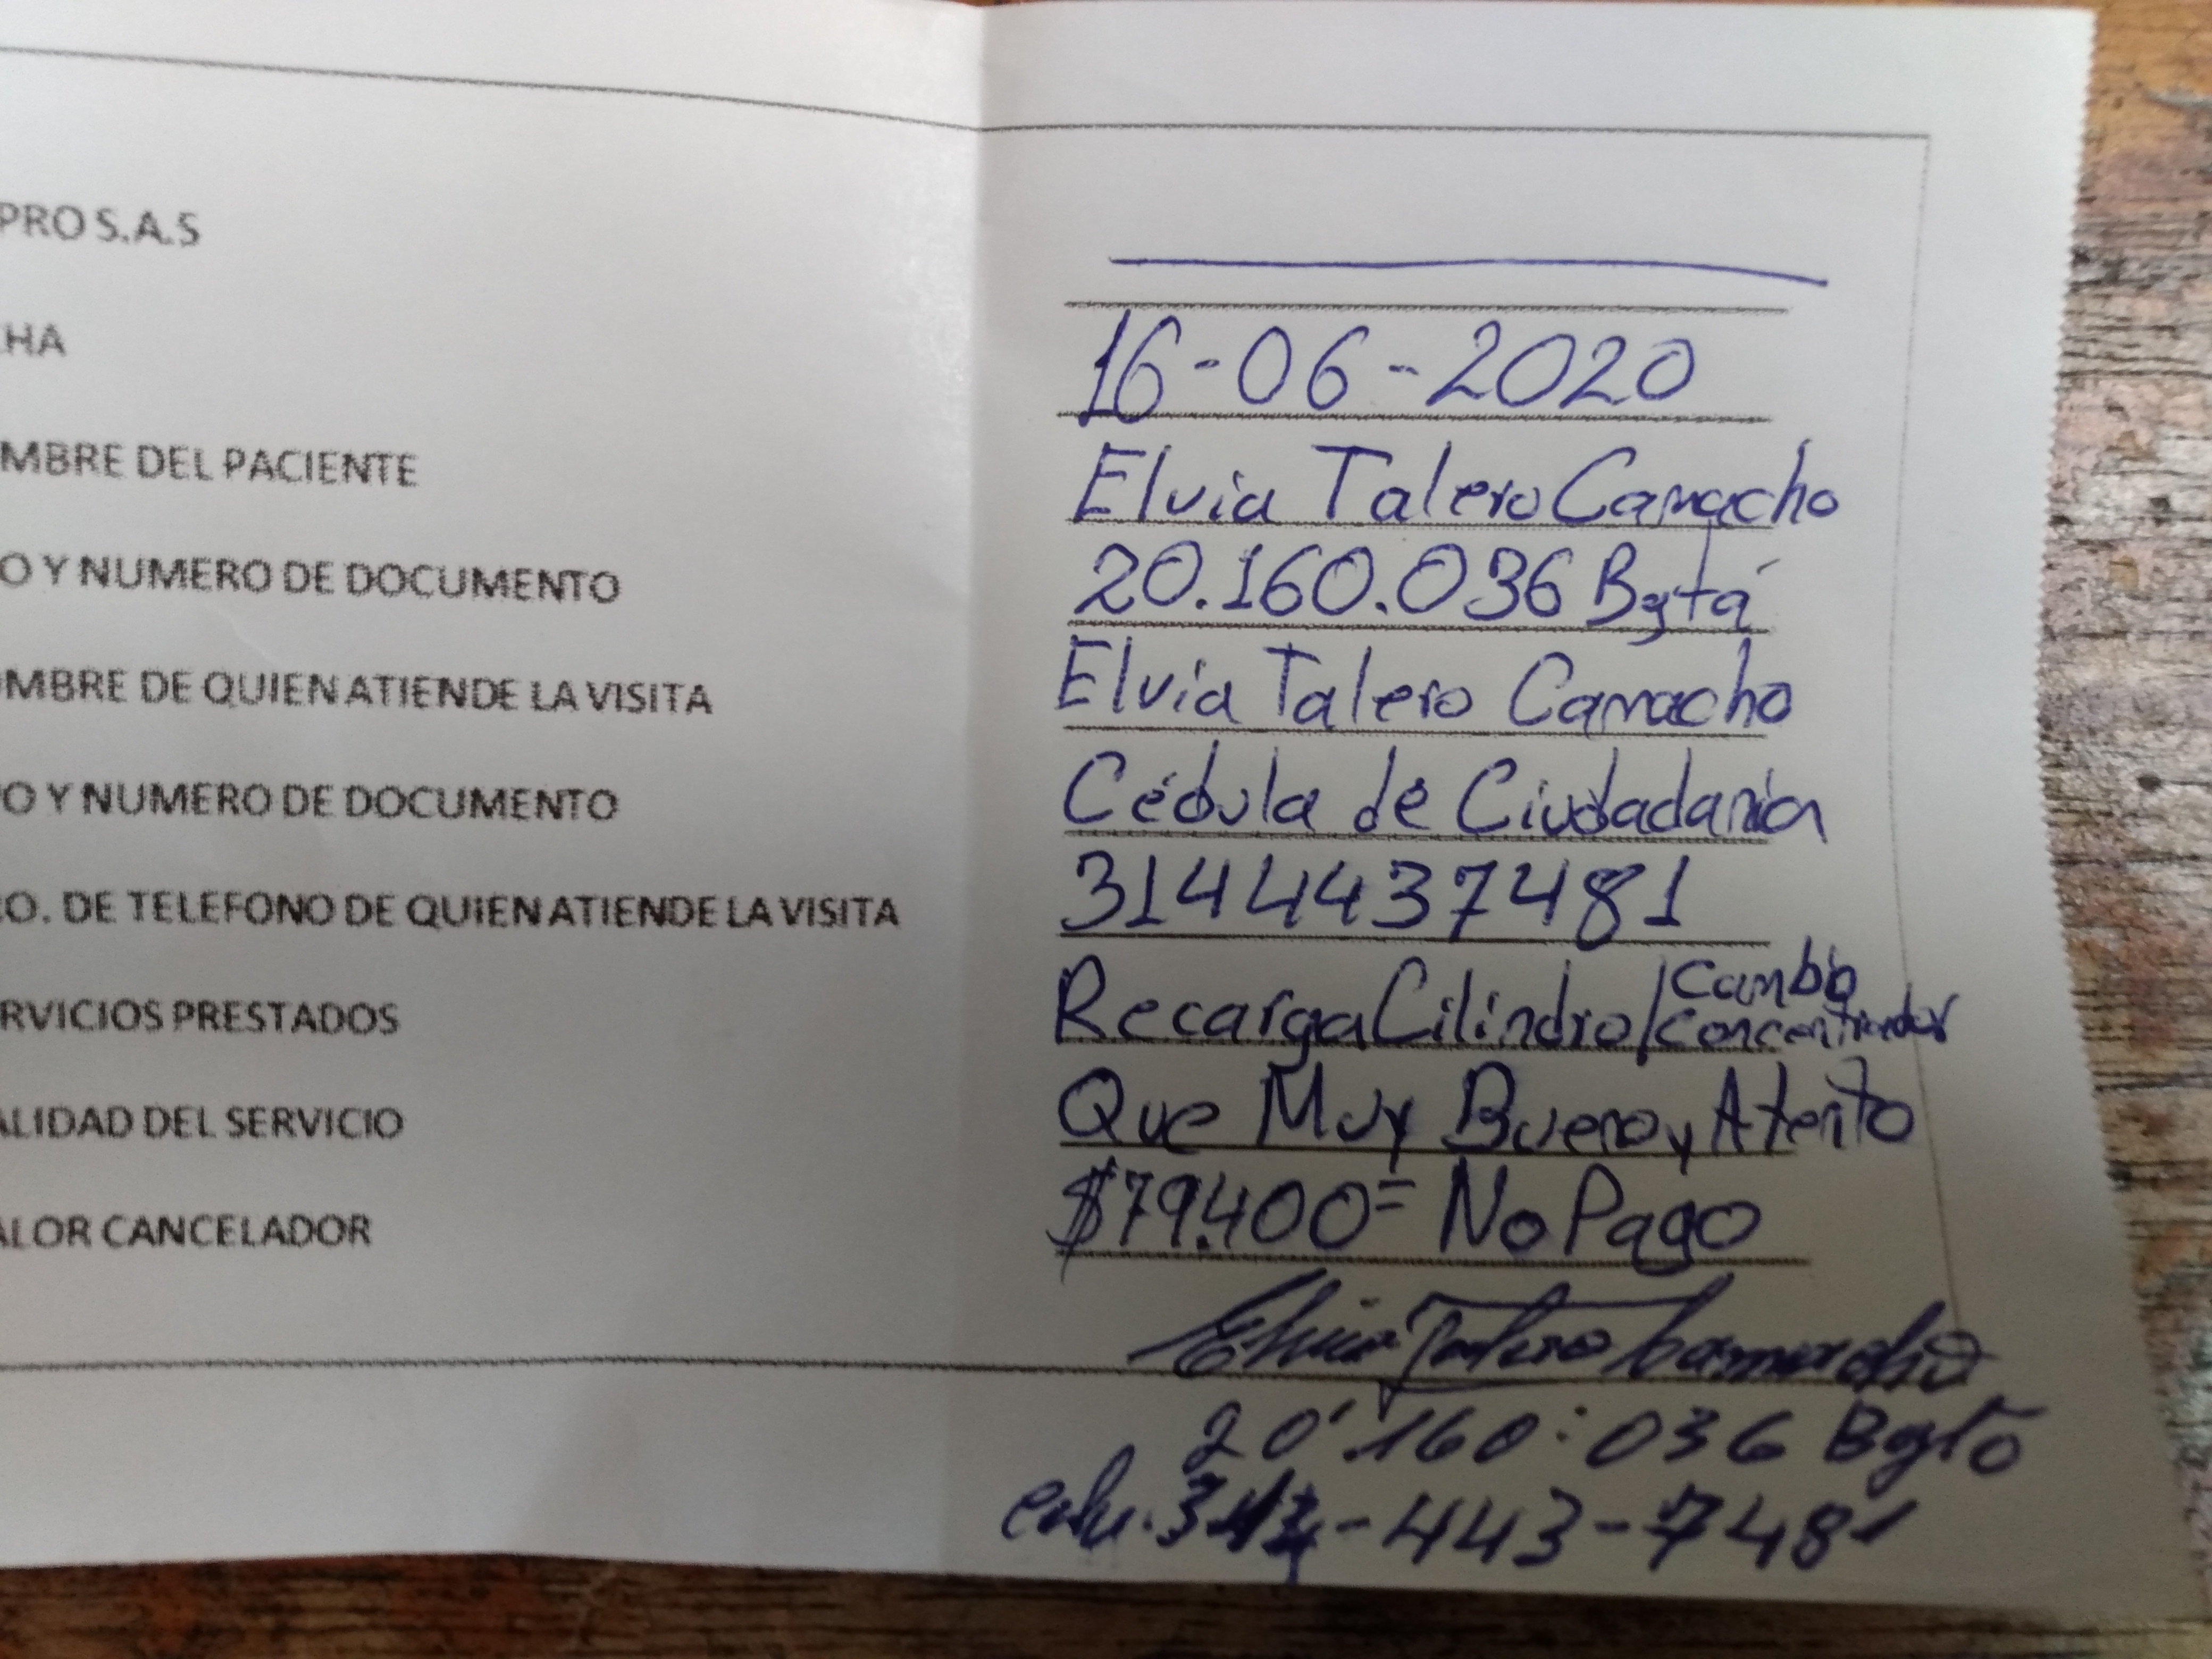 PRO S.A.S
HA 16-06-2020
MBRE DEL PACIENTE Elvia Talero Camacho
O Y NUMERO DE DOCUMENTO 20.160.036 Bgtá
MBRE DE QUIEN ATIENDE LA VISITA Elvia Talero Camacho
O Y NUMERO DE DOCUMENTO Cédula de Ciudadania
O. DE TELEFONO DE QUIEN ATIENDE LA VISITA 3144437481
RVICIOS PRESTADOS Recarga Cilindro/Cambio Concentrador
ALIDAD DEL SERVICIO Que Muy Bueno y Atento
ALOR CANCELADOR $79.400= No Pago
Elvia Talero Camacho
20'160:036 Bgtá
314-443-7481